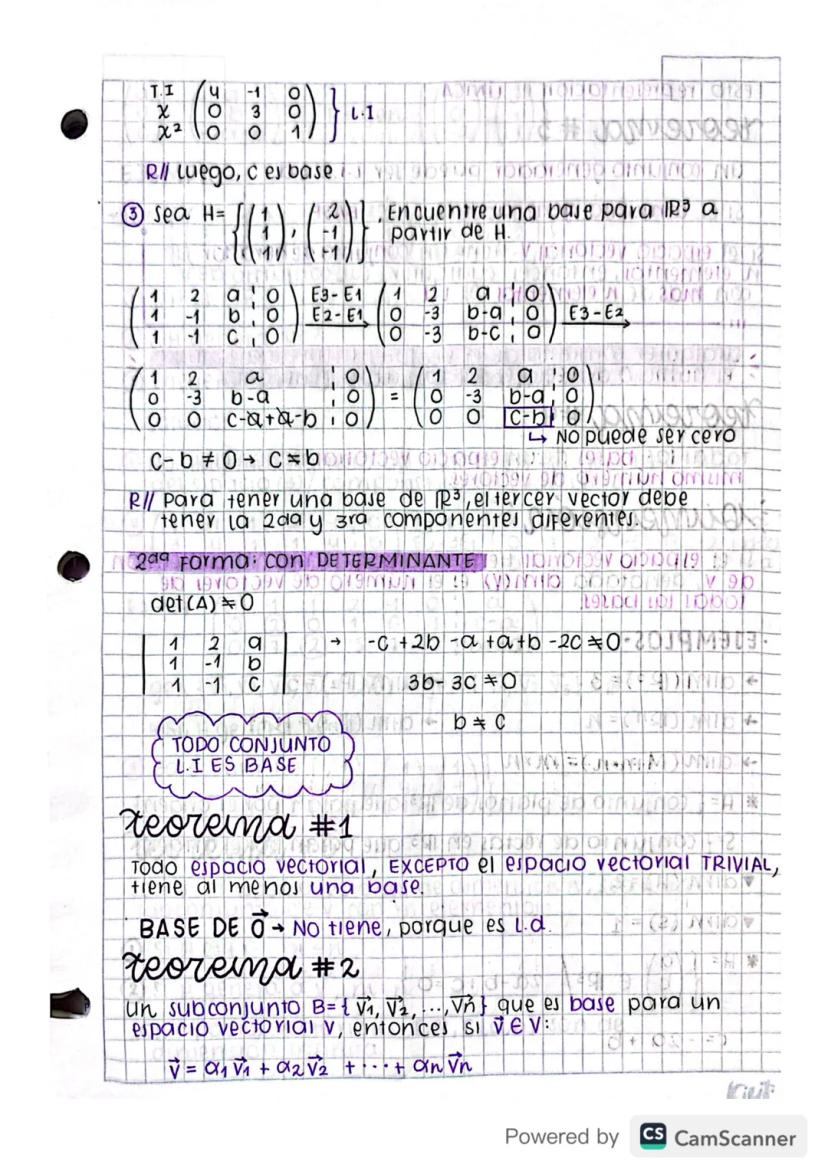 T.I ( 4 -1 0 )
x ( 0 3 0 ) } L.I
x² ( 0 0 1 )
R// Luego, C es base
③ Sea H= { ( 1 1 1 ) , ( 2 -1 -1 ) } . Encuentre una base para ℝ³ a
partir de H.
( 1 2 a ¦ 0 ) E3-E1 ( 1 2 a ¦ 0 )
( 1 -1 b ¦ 0 ) E2-E1 → ( 0 -3 b-a ¦ 0 ) E3-E2 →
( 1 -1 c ¦ 0 ) ( 0 -3 b-c ¦ 0 )
( 1 2 a ¦ 0 ) ( 1 2 a ¦ 0 )
( 0 -3 b-a ¦ 0 ) = ( 0 -3 b-a ¦ 0 )
( 0 0 c-a+a-b ¦ 0 ) ( 0 0 c-b ¦ 0 )
↳ No puede ser cero
c-b ≠ 0 → c ≠ b
R// Para tener una base de ℝ³, el tercer vector debe
tener la 2da y 3ra componentes diferentes.
2da Forma: con DETERMINANTE
det(A) ≠ 0
| 1 2 a | → -c+2b -a +a+b -2c ≠ 0
| 1 -1 b |
| 1 -1 c | 3b-3c ≠ 0
b ≠ c
TODO CONJUNTO
L.I ES BASE
teorema #1
Todo espacio vectorial, EXCEPTO el espacio vectorial TRIVIAL,
tiene al menos una base.
BASE DE 0⃗ → No tiene, porque es L.d.
teorema #2
Un subconjunto B={ v⃗1, v⃗2, ..., v⃗n } que es base para un
espacio vectorial V, entonces si v⃗ ∈ V:
v⃗ = α1 v⃗1 + α2 v⃗2 + ··· + αn v⃗n
Powered by CS CamScanner